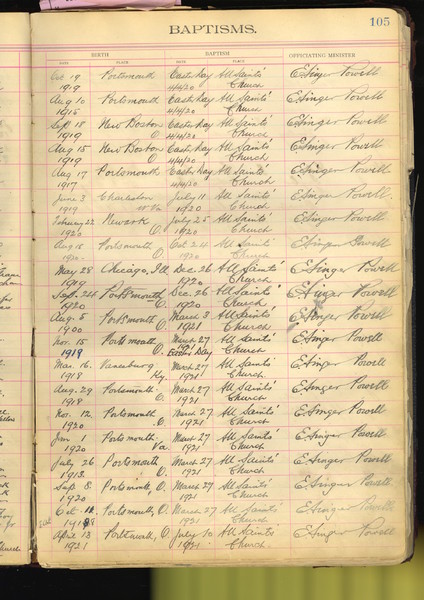 105
BAPTISMS.
BIRTH BAPTISM OFFICIATING MINISTER
DATE PLACE DATE PLACE
Oct 19 Portsmouth Easter Day All Saints' E Singer Powell
1919 4/4/20 Church
Aug 10 Portsmouth Easter Day All Saints' E Singer Powell
1915 4/4/20 Church
Sep 18 New Boston Easter Day All Saints' E Singer Powell
1919 O. 4/4/20 Church
Aug 15 New Boston Easter Day All Saints' E Singer Powell
1919 O. 4/4/20 Church
Aug 17 Portsmouth Easter Day All Saints' E Singer Powell
1917 4/4/20 Church
June 3 Charleston July 11 All Saints' E Singer Powell
1919 W Va 1920 Church
February 22 Newark July 25 All Saints' E Singer Powell
1920 O. 1920 Church
Aug 18 Portsmouth Oct 24 All Saints' E Singer Powell
1920 O. 1920 Church
May 28 Chicago, Ill Dec 26 All Saints' E Singer Powell
1919 1920 Church
Sep. 24 Portsmouth Dec. 26 All Saints' E Singer Powell
1920 O. 1920 Church
Aug. 5 Portsmouth March 3 All Saints' E Singer Powell
1900 O. 1921 Church
Nov. 15 Portsmouth March 27 All Saints' E Singer Powell
1921
1919 O. Easter Day Church
Mar. 16 Vanceburg March 27 All Saints' E Singer Powell
1918 Ky. 1921 Church
Aug. 29 Portsmouth March 27 All Saints' E Singer Powell
1918 O. 1921 Church
Nov. 12 Portsmouth March 27 All Saints' E Singer Powell
1920 O. 1921 Church
Jan. 1 Portsmouth March 27 All Saints' E Singer Powell
1920 Va. 1921 Church
July 26 Portsmouth March 27 All Saints' E Singer Powell
1913 O. 1921 Church
Sep. 8 Portsmouth, O. March 27 All Saints' E Singer Powell
1920 1921 Church
Oct. Portsmouth, O. March 27 All Saints' E Singer Powell
1921 Church
April 13 Portsmouth, O. July 10 All Saints E Singer Powell
1921 1921 Church.